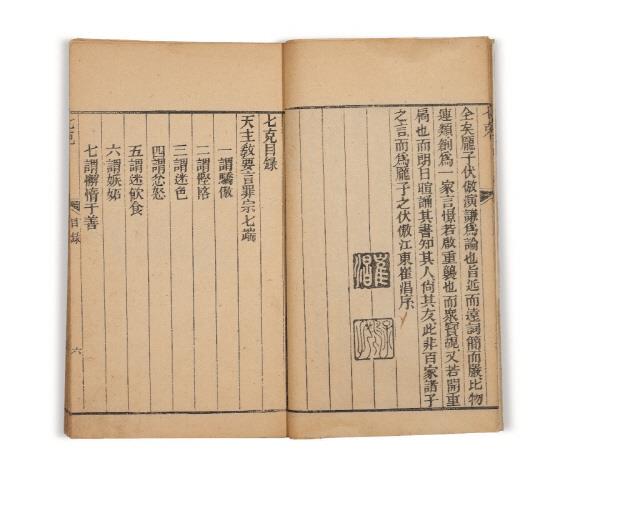 七克
全矣龐子伏傲演謙爲論也旨近而遠詞簡而嚴比物
連類創爲一家言憬若啟重襲也而衆寶覩又若開重
扃也而朗日暄誦其書知其人尙其友此非百家諸子
之言而爲龐子之伏傲江東崔淐序
崔淐
七克目錄
天主敎要言罪宗七端
一謂驕傲
二謂慳悋
三謂迷色
四謂忿怒
五謂迷飮食
六謂嫉妬
七謂懈惰于善
七克
目錄
六